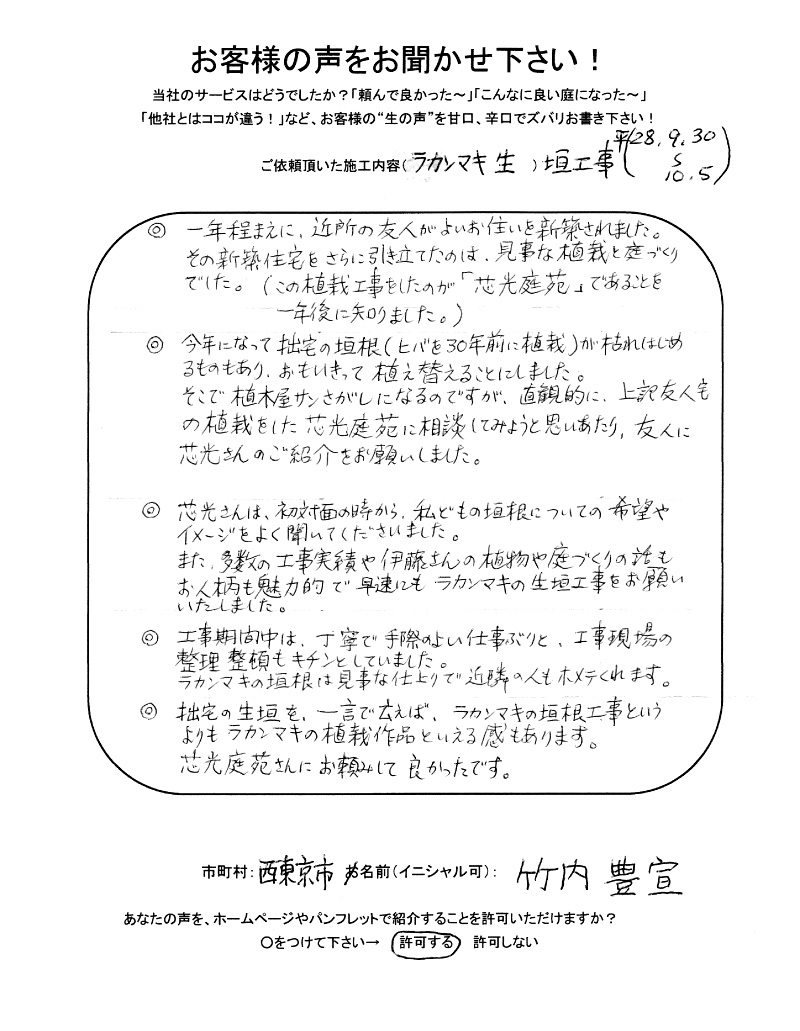 お客様の声をお聞かせ下さい！
当社のサービスはどうでしたか？「頼んで良かった～」「こんなに良い庭になった～」
「他社とはココが違う！」など、お客様の“生の声”を甘口、辛口でズバリお書き下さい！
ご依頼頂いた施工内容（ラカンマキ生）垣工事（平28.9.30
～
10.5）
◎ 一年程まえに、近所の友人がよいお住いを新築されました。
その新築住宅をさらに引き立てたのは、見事な植栽と庭づくり
でした。（この植栽工事をしたのが「芯光庭苑」であることを
一年後に知りました。）
◎ 今年になって拙宅の垣根（ヒバを30年前に植栽）が枯れはじめ
るものもあり、おもいきって植え替えることにしました。
そこで植木屋サンさがしになるのですが、直観的に、上記友人宅
の植栽をした芯光庭苑に相談してみようと思いあたり、友人に
芯光さんのご紹介をお願いしました。
◎ 芯光さんは、初対面の時から、私どもの垣根についての希望や
イメージをよく聞いてくださいました。
また、多数の工事実績や伊藤さんの植物や庭づくりの話も
お人柄も魅力的で早速にもラカンマキの生垣工事をお願い
いたしました。
◎ 工事期間中は、丁寧で手際のよい仕事ぶりと、工事現場の
整理整頓もキチンとしていました。
ラカンマキの垣根は見事な仕上りで近隣の人もホメテくれます。
◎ 拙宅の生垣を、一言で云えば、ラカンマキの垣根工事という
よりもラカンマキの植栽作品といえる感もあります。
芯光庭苑さんにお頼みして良かったです。
市町村：西東京市 お名前（イニシャル可）： 竹内 豊宣
あなたの声を、ホームページやパンフレットで紹介することを許可いただけますか？
〇をつけて下さい→ 許可する 許可しない